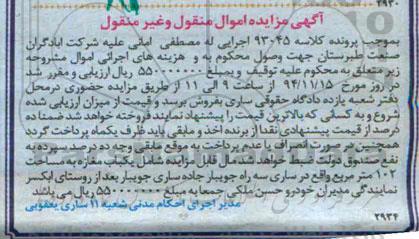 ۲۹۳۰
آگهی مزایده اموال منقول وغیر منقول
بموجب پرونده کلاسه ۴۵-۹۳ اجرایی له مصطفی امانی علیه شرکت ابادگران
صنعت طبرستان جهت وصول محکوم به و هزینه های اجرائی اموال مشروحه
زیر متعلق به محکوم علیه توقیف و بمبلغ ۵۵۰۰۰۰۰۰۰ ریال ارزیابی و مقرر شد
در روز مورخ ۹۴/۱۱/۱۵ از ساعت ۹ الی ۱۱ از طریق مزایده حضوری درمحل
دفتر شعبه یازده دادگاه حقوقی ساری بفروش برسد و قیمت از میزان ارزیابی شده
شروع و به کسانی که بالاترین قیمت را پیشنهاد نمایند فروخته خواهد شد ضمنا ده
درصد از قیمت پیشنهادی نقدا از برنده اخذ و مابقی باید ظرف یکماه پرداخت گردد
همچنین در صورت انصراف یا عدم پرداخت به موقع مابقی وجه ده درصد سپرده به
نفع صندوق دولت ضبط خواهد شد مال قابل مزایده شامل یکباب مغازه به مساحت
۱۰۲ متر مربع واقع در ساری سه راه جویبار جاده ساری جویبار بعد از روستای ابکسر
نمایندگی مدیران خودرو حسن ملکی جمعا به مبلغ ۵۵۰۰۰۰۰۰۰ ریال می باشد
مدیر اجرای احکام مدنی شعبه ۱۱ ساری یعقوبی
۲۹۳۴